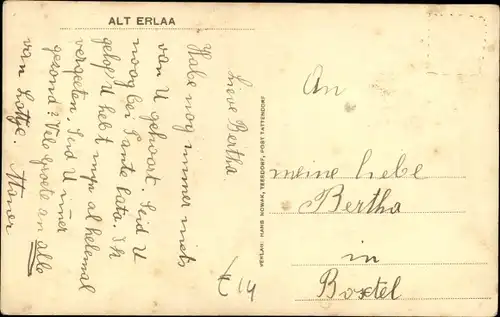 ALT ERLAA
Lieve Bertha.
Habe nog immer niets
van U gehoort. Seid U
noog bei Tante Cato. Ih
gelof U hebt mij al helemal
vergeeten. Seid U imer
gesond? Vele groete an alle
van Lottje.
VERLAG: HANS NOWAK, TEESDORF, POST TATTENDORF
An
meine liebe
Bertha
in
Boxtel
€ 14